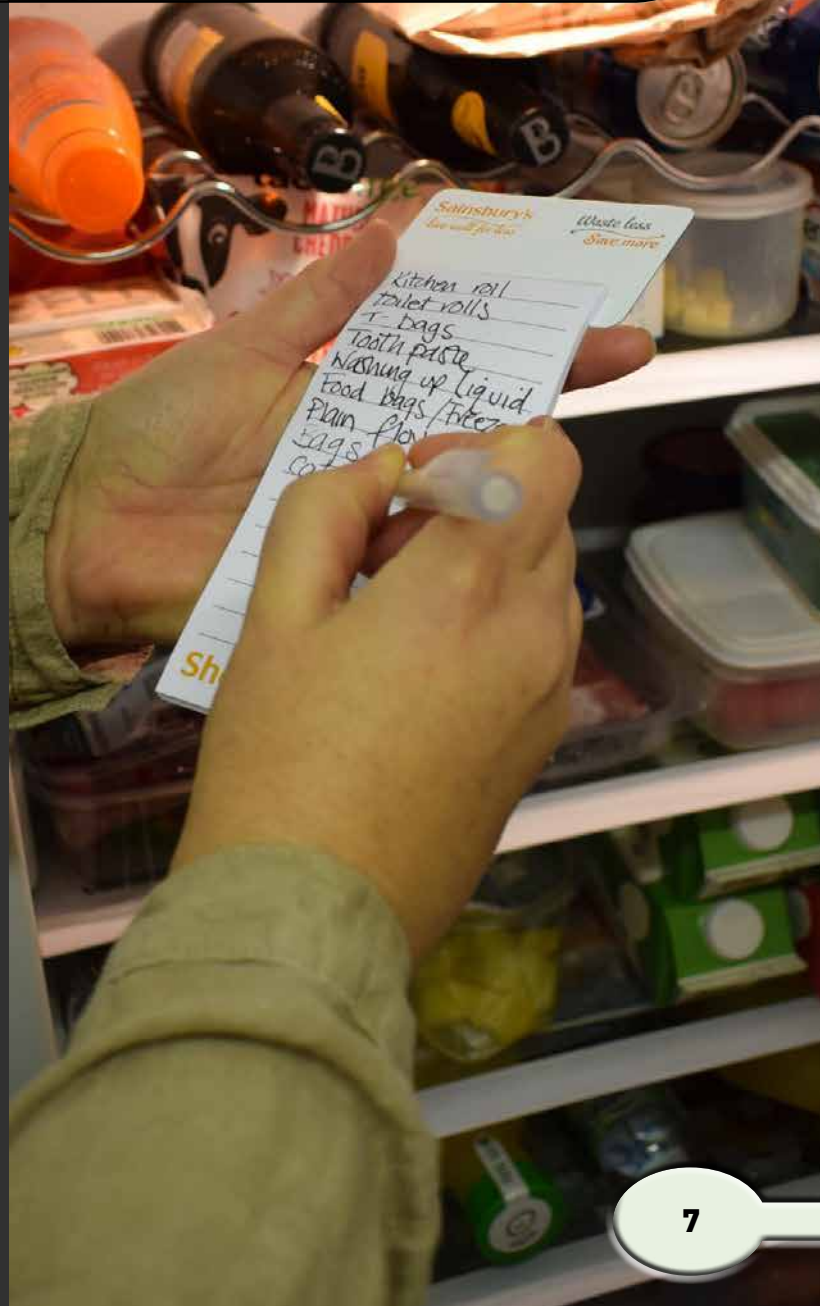 Sainsbury's
live well for less
Waste less
Save more
Kitchen roll
toilet rolls
T-bags
Tooth paste
Washing up liquid
Food bags/Freez
Plain flo
Bags
cat
Sh
B
B
7